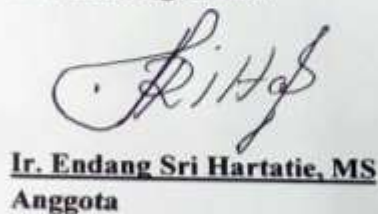 Ir. Endang Sri Hartatie, MS
Anggota